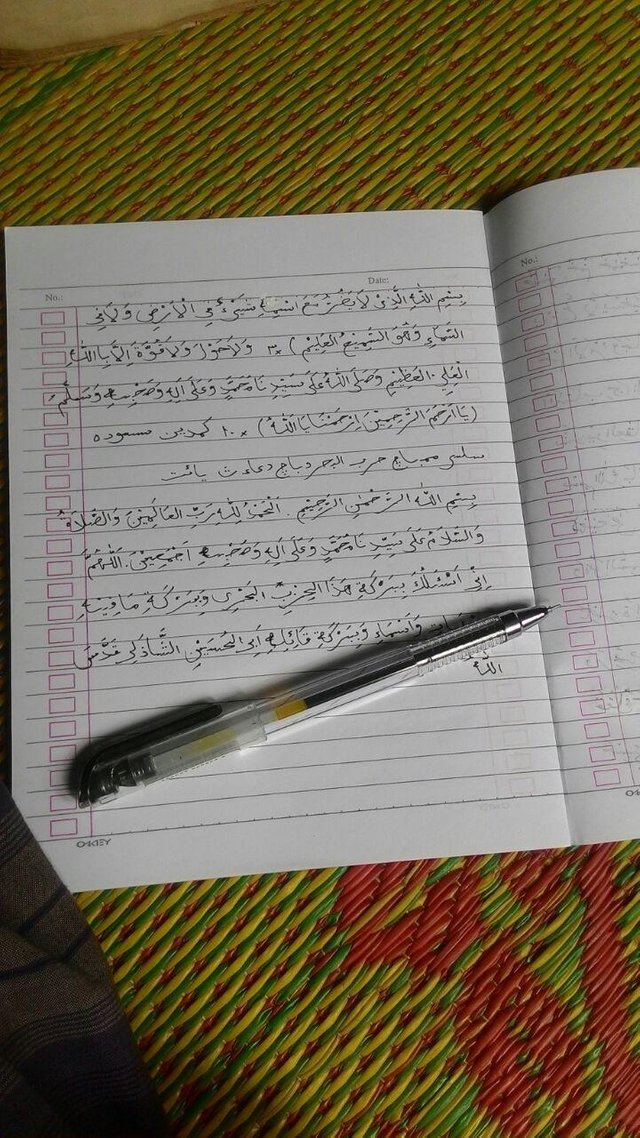 No.:
Date:
No.:
بِسْمِ اللهِ الَّذِيْ لَا يَضُرُّ مَعَ اسْمِهِ شَيْءٌ فِي الْاَرْضِ وَلَا فِي
السَّمَاءِ وَهُوَ السَّمِيْعُ الْعَلِيْمُ) ×٣ وَلَا حَوْلَ وَلَا قُوَّةَ اِلَّا بِاللهِ
الْعَلِيِّ الْعَظِيْمِ وَصَلَّى اللهُ عَلَى سَيِّدِنَا مُحَمَّدٍ وَعَلَى اٰلِهِ وَصَحْبِهِ وَسَلَّمَ
(يَا اَرْحَمَ الرَّحِمِيْنَ اِرْحَمْنَا يَا اَللهُ) ×١٠ كمدين سسوده
سلسى ممباچ حزب البحر دباچ دعاء ث يائت
بِسْمِ اللهِ الرَّحْمٰنِ الرَّحِيْمِ . اَلْحَمْدُ لِلّٰهِ رَبِّ الْعَالَمِيْنَ وَالصَّلَاةُ
وَالسَّلَامُ عَلَى سَيِّدِنَا مُحَمَّدٍ وَعَلَى اٰلِهِ وَصَحْبِهِ اَجْمَعِيْنَ. اَللّٰهُمَّ
اِنِّي اَسْئَلُكَ بِبَرَكَةِ هَذَا الْحِزْبِ الْبَحْرِي وَبِبَرَكَةِ مَا فِيْهِ
وَاَسْمَاءٍ وَبِبَرَكَةِ قَائِلِهِ اَبِي الْحَسَنِ الشَّاذَلِي قَدَّسَ
اللهُ
OKEY